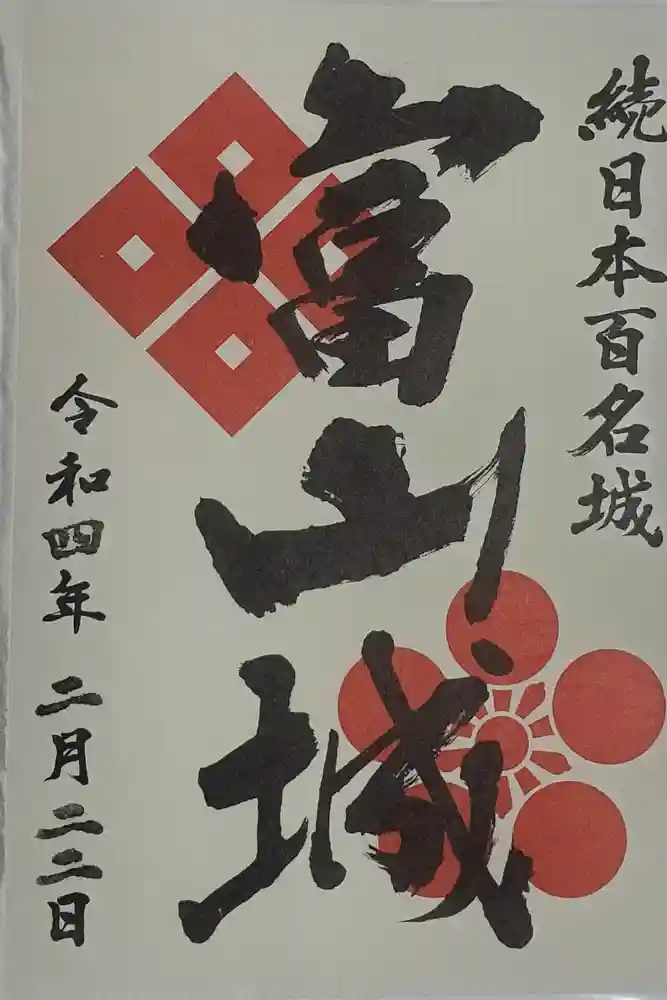 続日本百名城
富山城
令和四年 二月二二日